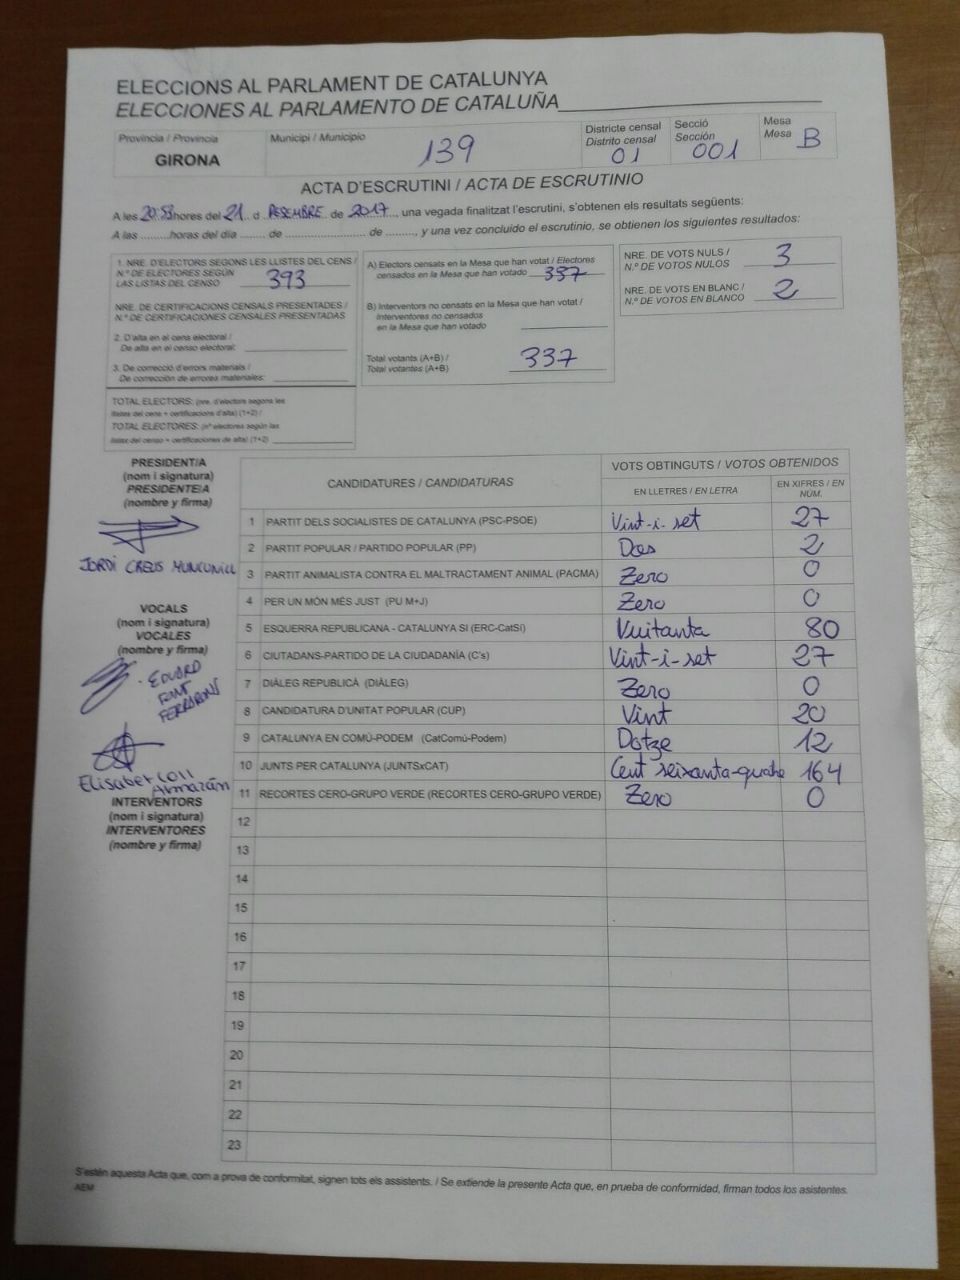 ELECCIONS AL PARLAMENT DE CATALUNYA
ELECCIONES AL PARLAMENTO DE CATALUÑA
Província / Provincia
GIRONA
Municipi / Municipio
139
Districte censal
Distrito censal
01
Secció
Sección
001
Mesa
Mesa
B
ACTA D'ESCRUTINI / ACTA DE ESCRUTINIO
A les 20:53 hores del 21 d DESEMBRE de 2017, una vegada finalitzat l'escrutini, s'obtenen els resultats següents:
A las ........horas del día ........ de ........................ de ........, y una vez concluido el escrutinio, se obtienen los siguientes resultados:
1. NRE. D'ELECTORS SEGONS LES LLISTES DEL CENS /
N.º DE ELECTORES SEGÚN
LAS LISTAS DEL CENSO 393
NRE. DE CERTIFICACIONS CENSALS PRESENTADES /
N.º DE CERTIFICACIONES CENSALES PRESENTADAS
2. D'alta en el cens electoral /
De alta en el censo electoral:
3. De correcció d'errors materials /
De corrección de errores materiales:
TOTAL ELECTORS: (nre. d'electors segons les
llistes del cens + certificacions d'alta) (1+2) /
TOTAL ELECTORES: (nº electores según las
listas del censo + certificaciones de alta) (1+2)
A) Electors censats en la Mesa que han votat / Electores
censados en la Mesa que han votado 337
B) Interventors no censats en la Mesa que han votat /
Interventores no censados
en la Mesa que han votado
Total votants (A+B) /
Total votantes (A+B)
337
NRE. DE VOTS NULS /
N.º DE VOTOS NULOS
3
NRE. DE VOTS EN BLANC /
N.º DE VOTOS EN BLANCO
2
PRESIDENT/A
(nom i signatura)
PRESIDENTE/A
(nombre y firma)
JORDI CREUS MUNCUNILL
VOCALS
(nom i signatura)
VOCALES
(nombre y firma)
EDUARD
FONT
FERRARONS
Elisabet Coll
Almazán
INTERVENTORS
(nom i signatura)
INTERVENTORES
(nombre y firma)
CANDIDATURES / CANDIDATURAS
VOTS OBTINGUTS / VOTOS OBTENIDOS
EN LLETRES / EN LETRA
EN XIFRES / EN
NÚM.
1 PARTIT DELS SOCIALISTES DE CATALUNYA (PSC-PSOE) Vint-i-set 27
2 PARTIT POPULAR / PARTIDO POPULAR (PP) Dos 2
3 PARTIT ANIMALISTA CONTRA EL MALTRACTAMENT ANIMAL (PACMA) Zero 0
4 PER UN MÓN MÉS JUST (PU M+J) Zero 0
5 ESQUERRA REPUBLICANA - CATALUNYA SI (ERC-CatSí) Vuitanta 80
6 CIUTADANS-PARTIDO DE LA CIUDADANÍA (C's) Vint-i-set 27
7 DIÀLEG REPUBLICÀ (DIÀLEG) Zero 0
8 CANDIDATURA D'UNITAT POPULAR (CUP) Vint 20
9 CATALUNYA EN COMÚ-PODEM (CatComú-Podem) Dotze 12
10 JUNTS PER CATALUNYA (JUNTSxCAT) Cent seixanta-quatre 164
11 RECORTES CERO-GRUPO VERDE (RECORTES CERO-GRUPO VERDE) Zero 0
12
13
14
15
16
17
18
19
20
21
22
23
S'estén aquesta Acta que, com a prova de conformitat, signen tots els assistents. / Se extiende la presente Acta que, en prueba de conformidad, firman todos los asistentes.
AEM